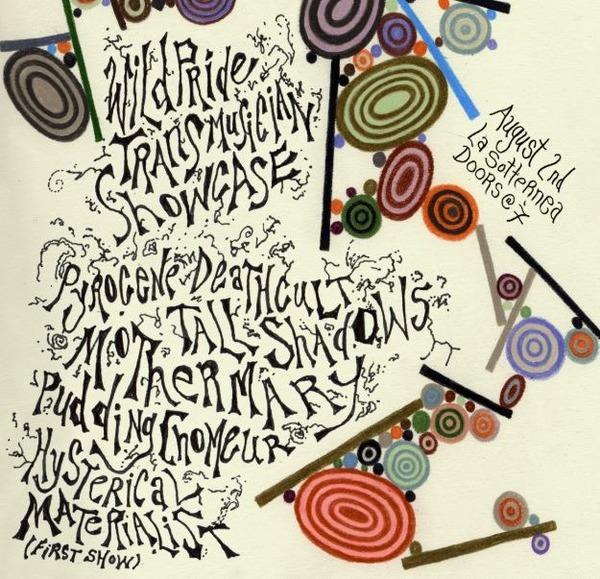 Wild Pride
Trans Musician
Showcase
August 2nd
La Sotterenea
Doors @ 7
Pyrocene DeathCult
Tall Shadows
Mother Mary
Pudding Chomeur
Hysterical
Materialist
(First Show)